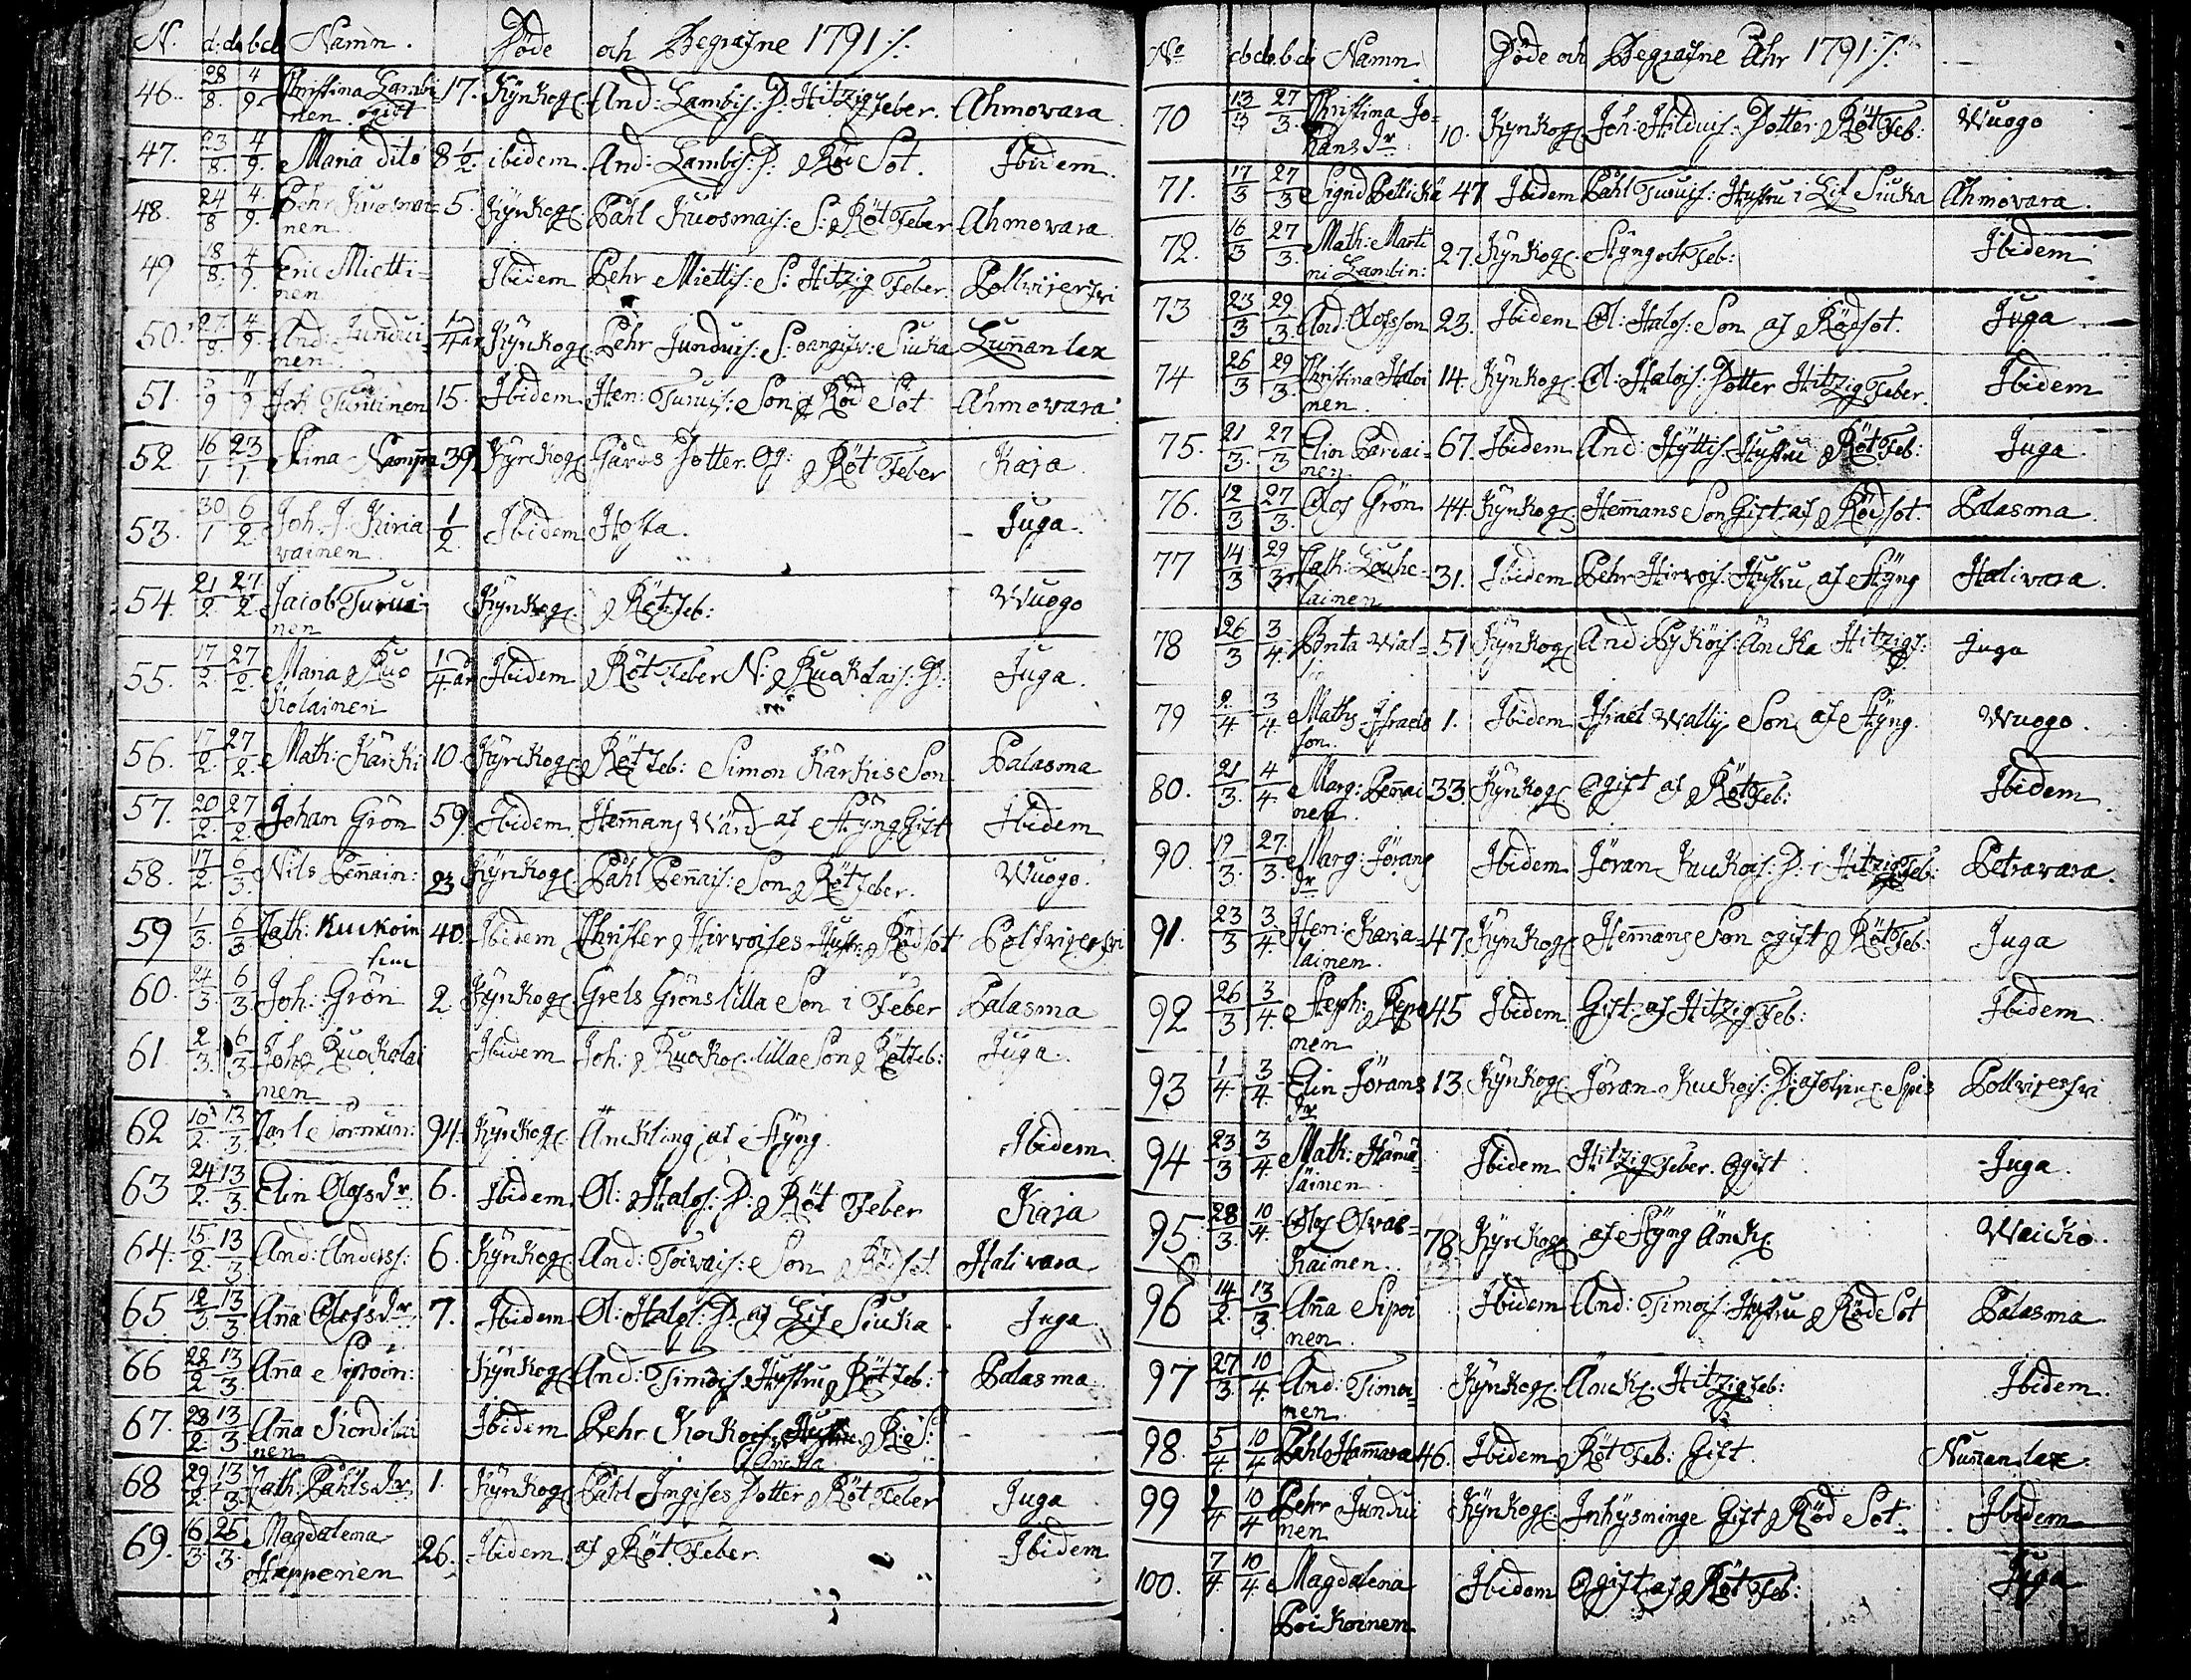 N. d: d. b. d. Namn. Döde och Begrafne 1791 /.
46. 28/8. 4/9. Christina Lambinen ogift 17. Kyrkog. And: Lambis: D. Hitzig Feber. Ahmovara
47. 23/8. 4/9. Maria dito 8 1/2. ibidem. And: Lambis: D: Röd Sot. Ibidem.
48. 24/8 4/9. Pehr Kuosmainen 5. Kyrkog. Påhl Kuosmais: S: Röt Feber Ahmovara
49 18/8. 4/9. Eric Miettinen Ibidem Pehr Miettis: S: Hitzig Feber.
50. 27/8. 4/9. And: Junduinen Kyrkog. Pehr Junduis: S: Siuka
51. 5/9 11/9 Joh Turuinen 15. Ibidem Hen: Turuis: Son Röd Sot Ahmovara
52 16/1 23/1. Stina 39. Kyrkog. Dotter. Og: Röt Feber Kaja
53. 30/1 6/2. Joh. J. Kiriavainen 1/2. Ibidem Hosta. Juga.
54. 21/2. 27/2. Jacob Turuinen Kyrkog. Röt Feb: Wuogo
55. 17/2. 27/2. Maria Ruokolainen Ibidem Röt Feber N: Ruokolais: D: Juga.
56. 17/2. 27/2. Math: Kärki 10. Kyrkog. Röt Feb: Simon Kärkis Son Palasma
57. 20/2. 27/2. Johan Grön 59. Ibidem. Hemans Värd af Styng Gift Ibidem
58. 17/2. 6/3. Nils Penain: 23 Kyrkog. Påhl Penais: Son Röt Feber. Wuogo.
59 1/3. 6/3 Cath: Kuckoin 40. Ibidem Christer Hirvoises Hustr: Rödsot
60. 24/3. 6/3 Joh: Grön 2 Kyrkog. Grels Gröns lilla Son i Feber Palasma
61 2/3. 6/3 Joh Ruokolainen Ibidem Joh: Ruokol: lilla Son Röt Feb: Juga.
62 10/2. 13/3. Carl Sormun: 94. Kyrkog. Änkling af Styng. Ibidem
63 24/2. 13/3. Elin Olofsdr 6. Ibidem Ol: Halos: D: Röt Feber Kaja
64. 15/2. 13/3. And: Anderss: 6. Kyrkog. And: Toivais: Son Rödsot Halivara
65 12/3 13/3 Anna Olofsdr 7. Ibidem Ol: Halos: D. af Lif Siuka Juga
66 22/2 13/3. Anna Sipoin: Kyrkog. And: Timois: Hustru Röt Feb: Palasma
67. 23/2. 13/3 Anna Ibidem Pehr Kockois:
68 29/2. 13/3. Cath: Påhlsdr 1. Kyrkog. Påhl Ingises Dotter Röt Feber Juga
69. 16/3. 26/3. Magdalena Hepponen 26. Ibidem af Röt Feber. Ibidem
No Namn. Döde och Begrafne Åhr 1791 /.
70 13/3 27/3. Christina Johansdr 10. Kyrkog. Joh: Hilduis: Dotter Röt Feb: Wuogo
71. 17/3 27/3 Sigrid 47 Ibidem Påhl Turuis: Hustru i Lif Siuka Ahmovara.
72. 16/3 27/3. Math: Martini Lambin: 27. Kyrkog. Styng och Feb: Ibidem
73 23/3 29/3 And: Olofsson 23. Ibidem Ol: Halos: Son af Rödsot. Juga
74 26/3 29/3. Christina Haloinen 14. Kyrkog. Ol: Halois: Dotter Hitzig Feber. Ibidem
75. 21/3. 27/3 Elin Pardainen 67. Ibidem And: Hyttis: Hustru Röt Feb: Juga.
76. 12/3 27/3. Olof Grön 44. Kyrkog. Hemans Son Gift af Rödsot. Palasma.
77 14/3 29/3. Cath: Louhelainen 31. Ibidem Pehr Hirvois: Hustru af Styng Halivara.
78 26/3 3/4. 51 Kyrkog. And: Änka Hitzig F: Juga
79 2/4. 3/4. Maths Israelsson 1. Ibidem Israel Wallis Son af Styng. Wuogo.
80. 21/3. 4/4. Marg: Penainen 33. Kyrkog. Ogift af Röt Feb: Ibidem
90. 19/3. 27/3. Marg: Jöransdr Ibidem Jöran Kuckois: D: i Hitzig Feb: Petravara.
91. 23/3 3/4. Hen: Karialainen 47. Kyrkog. Hemans Son ogift Röt Feb: Juga
92 26/3 3/4. Steph: Reponen 45 Ibidem Gift af Hitzig Feb: Ibidem.
93 1/4. 3/4. Elin Jöransdr 13. Kyrkog. Jöran Kuckois: D:
94 23/3 3/4 Math: Hämäläinen Ibidem Hitzig Feber. Ogift Juga.
95. 28/3. 10/4. Olof 78. Kyrkog. af Styng Änk. Waicko.
96 14/2. 13/3. Anna Sipoinen Ibidem And: Timois: Hustru Röde Sot Palasma.
97 27/3. 10/4. And: Timoinen Kyrkog. Änk. Hitzig Feb: Ibidem
98. 5/4. 10/4 Påhl 46. Ibidem Röt Feb: Gift.
99 9/4 10/4 Pehr Junduinen Kyrkog. Inhysninge Gift Röd Sot. Ibidem
100. 7/4. 10/4. Magdalena Poikoinen Ibidem Ogift af Röt Feb: Juga